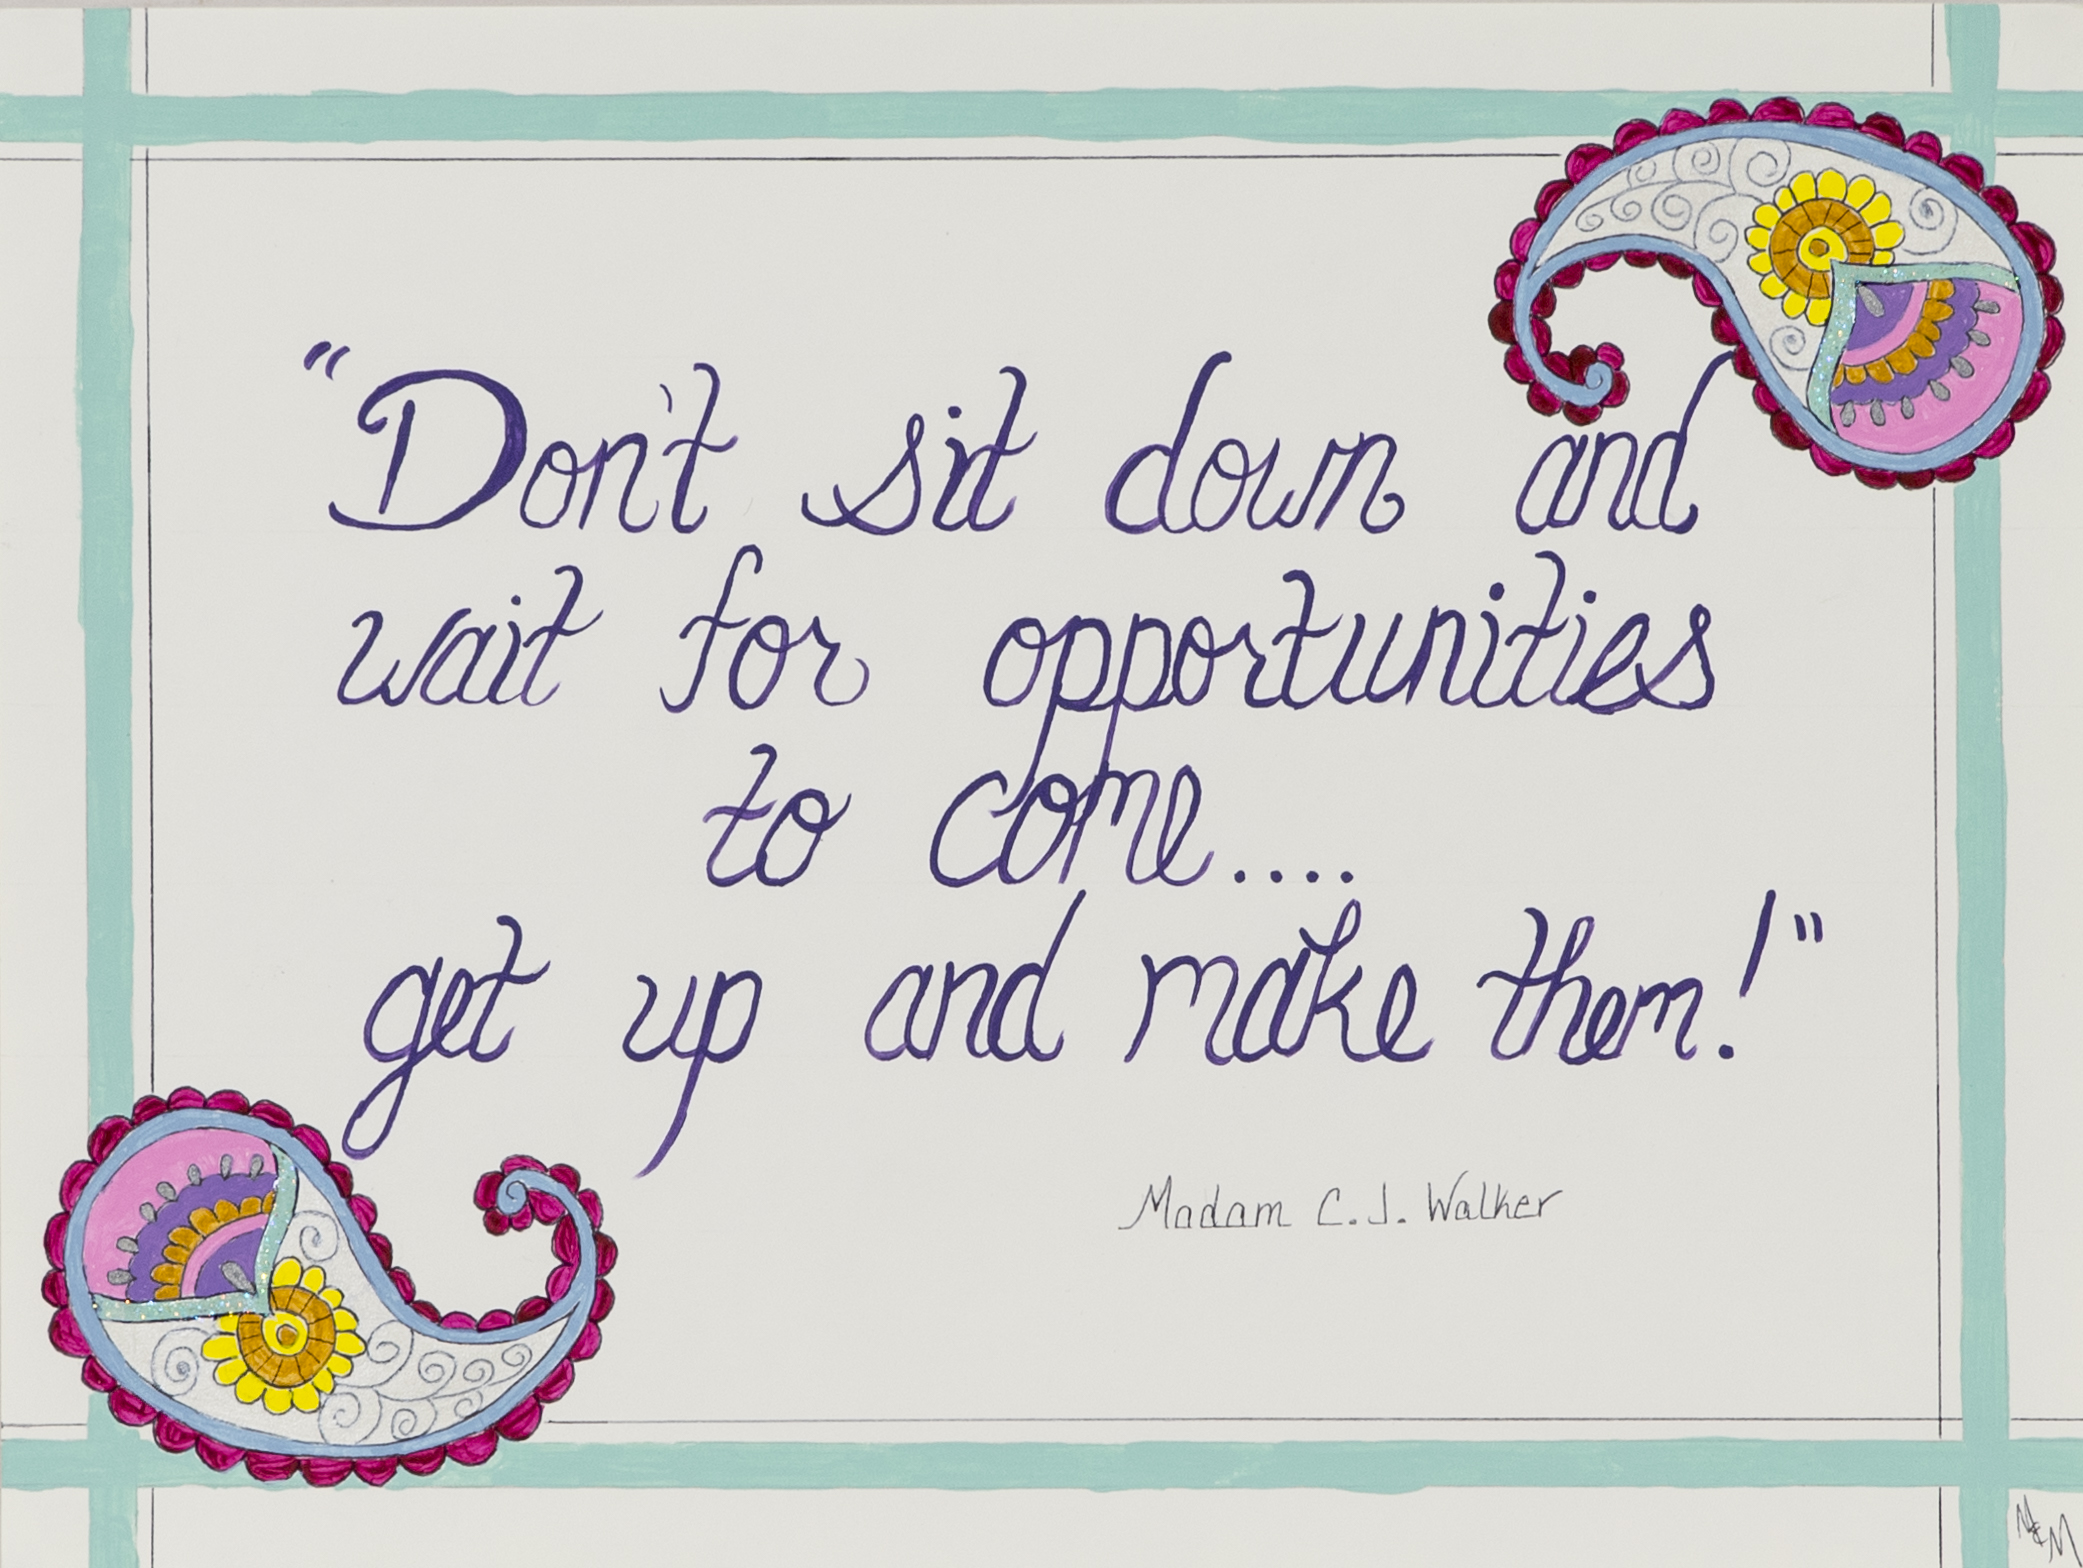 "Don't sit down and
wait for opportunities
to come....
get up and make them!"
Madam C. J. Walker
M&M